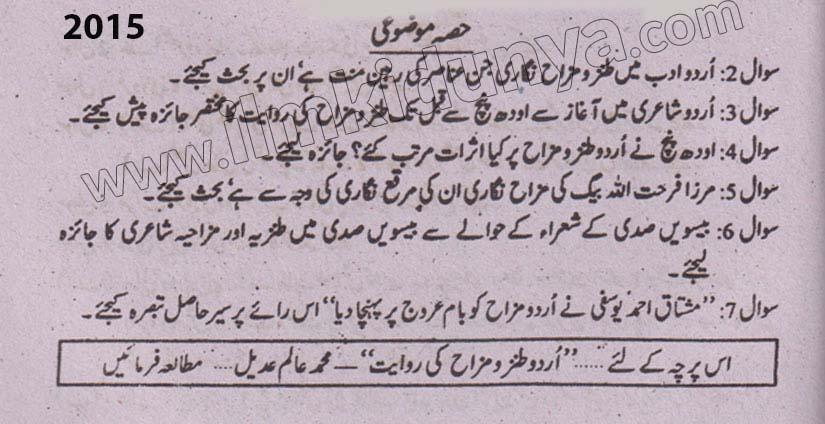 2015
حصہ موضوعی
سوال 2: اُردو ادب میں طنز و مزاح نگاری جن عناصر کی رہین منت ہے‘ ان پر بحث کیجئے۔
سوال 3: اُردو شاعری میں آغاز سے اودھ پنچ سے قبل تک طنز و مزاح کی روایت کا مختصر جائزہ پیش کیجئے۔
سوال 4: اودھ پنچ نے اُردو طنز و مزاح پر کیا اثرات مرتب کئے؟ جائزہ لیجئے۔
سوال 5: مرزا فرحت اللہ بیگ کی مزاح نگاری ان کی مرقع نگاری کی وجہ سے ہے‘ بحث کیجئے۔
سوال 6: بیسویں صدی کے شعراء کے حوالے سے بیسویں صدی میں طنزیہ اور مزاحیہ شاعری کا جائزہ
لیجئے۔
سوال 7: ”مشتاق احمد یوسفی نے اُردو مزاح کو بام عروج پر پہنچا دیا“ اس رائے پر سیر حاصل تبصرہ کیجئے۔
اس پرچہ کے لئے ...... ”اُردو طنز و مزاح کی روایت“ — محمد عالم عدیل .... مطالعہ فرمائیں
www.ilmkidunya.com